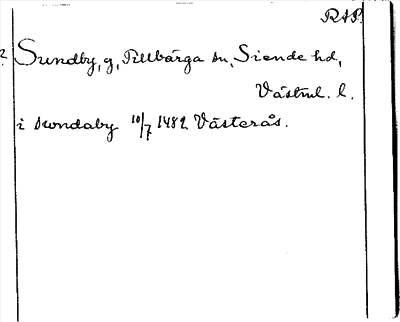 RAP.
Sundby, g, Tillbärga sn, Siende hd,
Västml. l.
i swndaby 10/7 1482 Västerås.